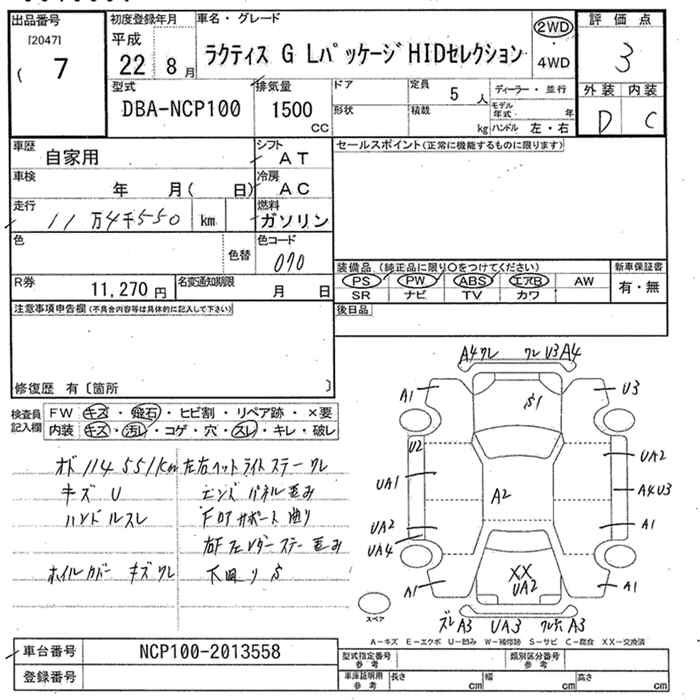 出品番号
[2047]
( 7
初度登録年月
平成
22 8 月
車名・グレード
ラクティス G Lパッケージ HIDセレクション
2WD
・
4WD
評価点
3
外装 内装
D C
型式
DBA-NCP100
排気量
1500
CC
ドア
形状
定員
5 人
積載
kg
ディーラー・並行
モデル年式 年
ハンドル 左・右
車歴
自家用
シフト
AT
車検
年 月( 日)
冷房
AC
走行
11万4千550 km
燃料
ガソリン
色
色替
色コード
070
R券
11,270 円
名変通知期限
月 日
セールスポイント(正常に機能するものに限ります)
装備品 (純正品に限り○をつけてください)
PS PW ABS エアB AW
SR ナビ TV カワ
新車保証書
有・無
後日品
注意事項申告欄(不具合内容等は具体的に記入して下さい)
修復歴 有〔箇所 〕
検査員
記入欄
FW キズ・飛石・ヒビ割・リペア跡・×要
内装 キズ・汚レ・コゲ・穴・スレ・キレ・破レ
オド 114551km
キズ U
ハンドルスレ
ホイルカバー キズ ワレ
左右ヘットライトステー ワレ
エンドパネル歪み
FロアサポートE曲り
右Fフェンダーステー歪み
下回り S
A4ワレ ワレU3A4
A1 U3
S1
U2
UA1
UA2
A2
A4U3
UA2
UA4
A1
XX
UA2
A1 A1
スペア
ズレA3 UA3 A3
A-キズ E-エクボ U-凹み W-補修跡 S-サビ C-腐食 XX-交換済
車台番号
NCP100-2013558
登録番号
型式指定番号
参考
類別区分番号
参考
車庫証明用
参考
長さ cm
幅 cm
高さ cm